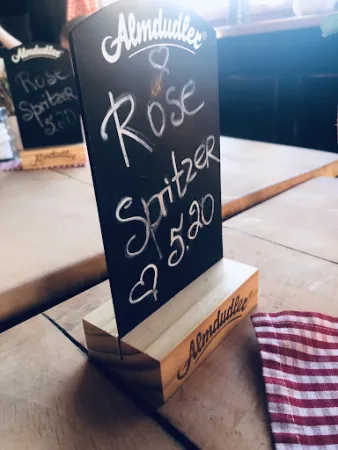 Almdudler
Rose
Spritzer
5.20
Almdudler
Rose
Spritzer
5.20
Almdudler
Almdudler